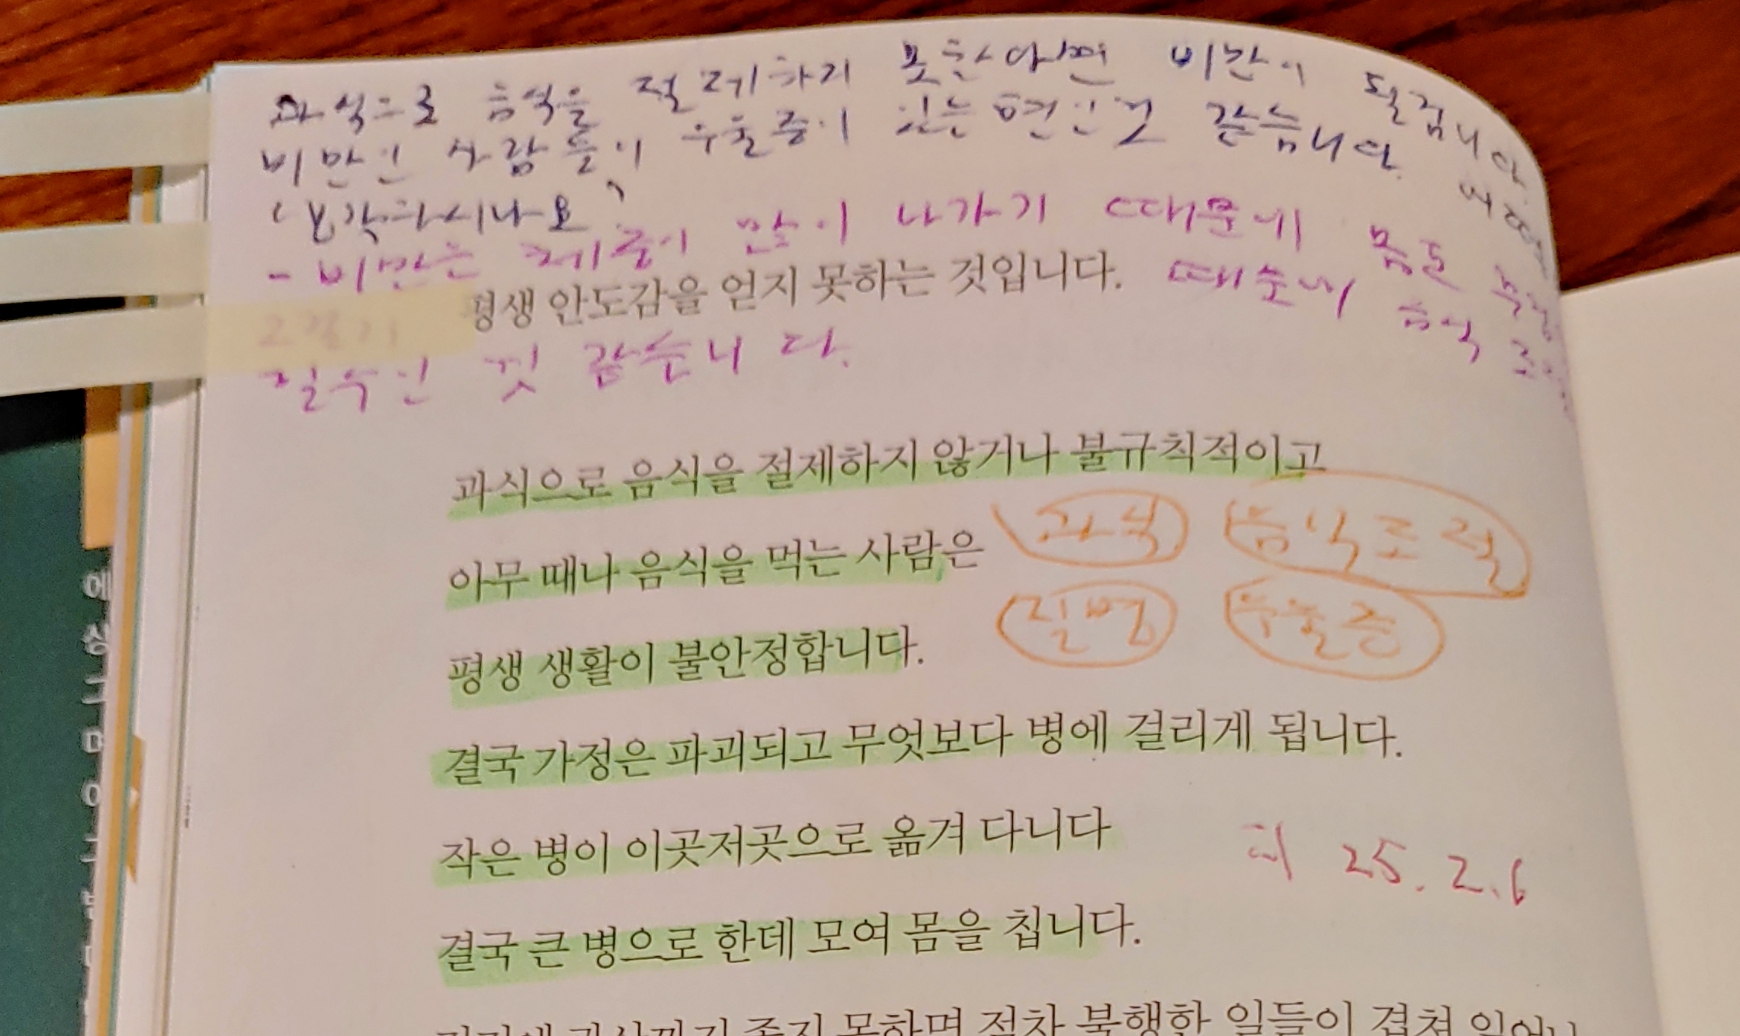 과식으로 음식을 절제하지 못한다면 비만이 될겁니다
비만인 사람들이 우울증이 있는 현인것 같습니다. 어떠
생각하시나요
- 비만은 체중이 많이 나가기 때문에 몸도
평생 안도감을 얻지 못하는 것입니다.
때문에 음식
필수인 것 같습니다.
과식으로 음식을 절제하지 않거나 불규칙적이고
과식 음식조절
아무 때나 음식을 먹는 사람은
질병 우울증
평생 생활이 불안정합니다.
결국 가정은 파괴되고 무엇보다 병에 걸리게 됩니다.
작은 병이 이곳저곳으로 옮겨 다니다
25.2.6
결국 큰 병으로 한데 모여 몸을 칩니다.
못하면 점차 불행한 일들이 겹쳐